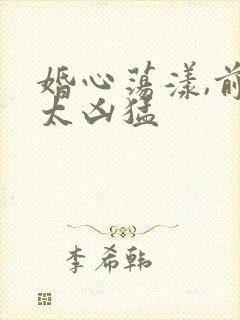 婚心荡漾,前
太凶猛
李希韩